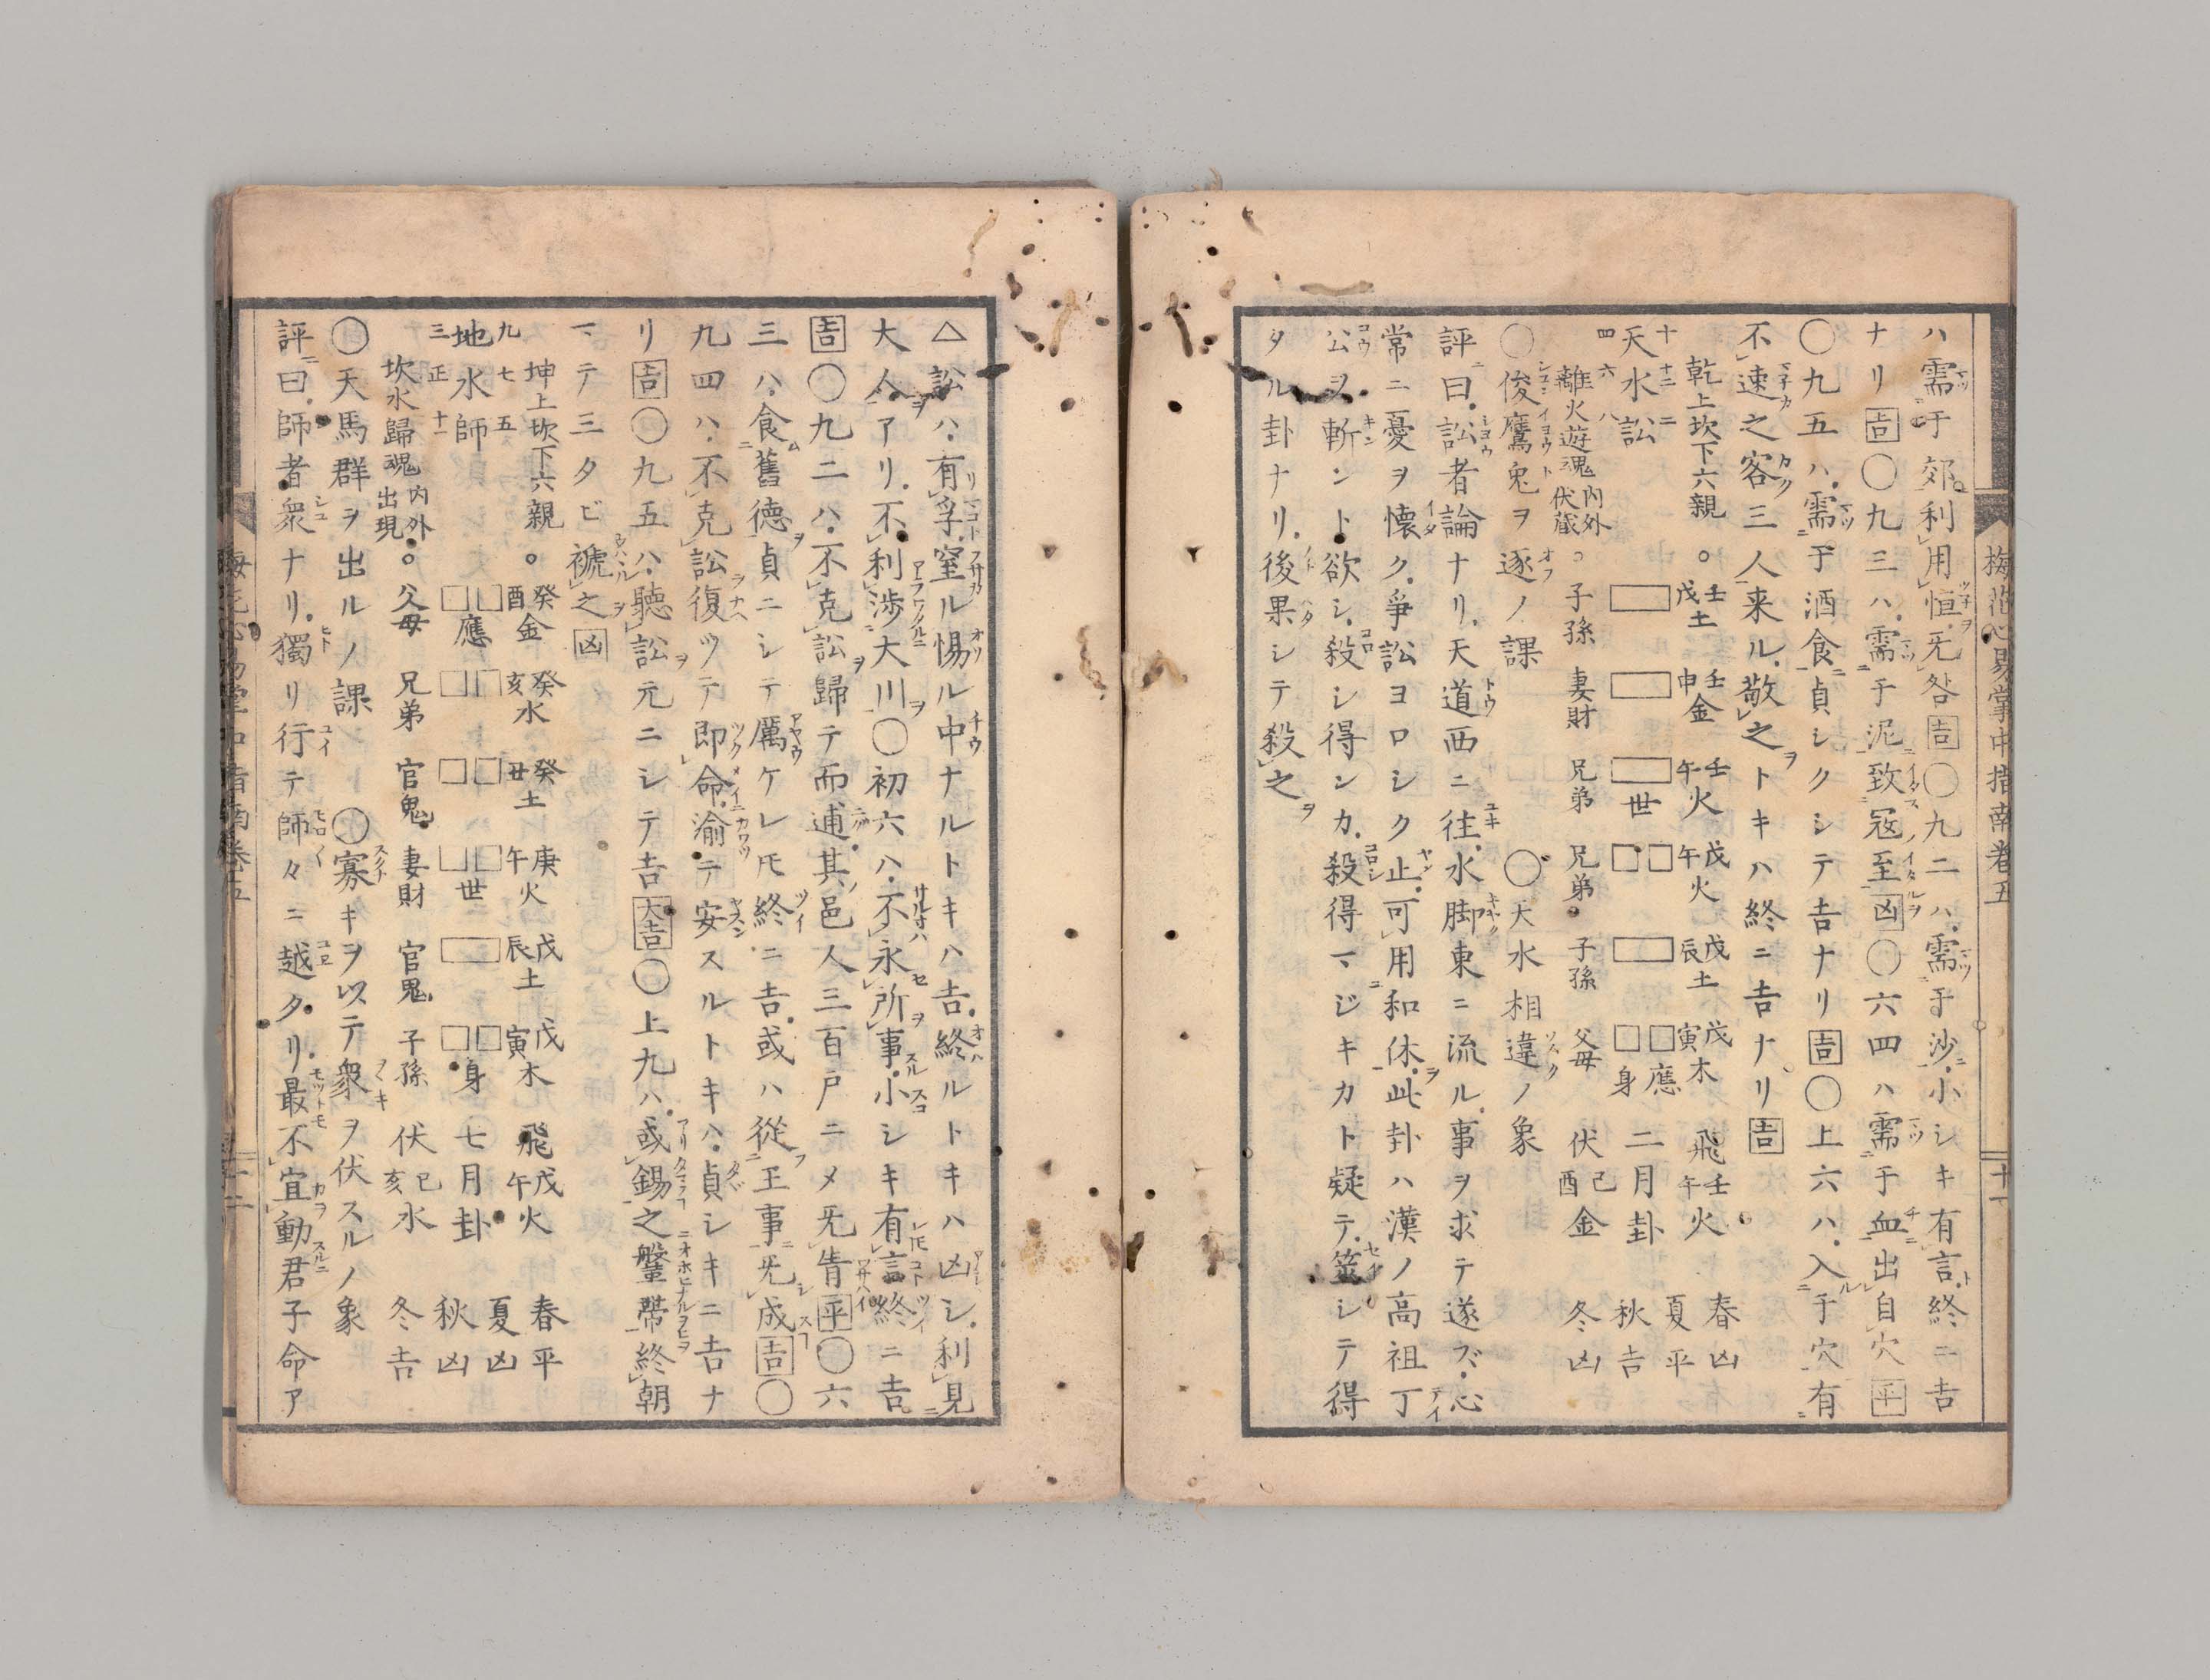 梅花心易掌中指南卷五
ハ需于郊利用恒无咎吉〇九二ハ需于沙小シキ有言終ニ吉
ナリ吉〇九三ハ需于泥致寇至凶〇六四ハ需于血出自穴平
〇九五ハ需于酒食貞シクシテ吉ナリ吉〇上六ハ入于穴有
不速之客三人来ル敬之トキハ終ニ吉ナリ吉
乾上坎下六親。壬戌土 壬申金 壬午火 戊午火 戊辰土 戊寅木 飛壬午火 春凶
十 十二 二 夏平
天水訟 世 應 身 二月卦 秋吉
四 六 八
離火遊魂 内外伏蔵。子孫 妻財 兄弟 兄弟 子孫 父母 伏己酉金 冬凶
〇俊鷹兎ヲ逐ノ課 〇天水相違ノ象
評曰訟者論ナリ天道西ニ往水脚東ニ流ル事ヲ求テ遂ズ心
常ニ憂ヲ懐ク爭訟ヨロシク止可用和休此卦ハ漢ノ高祖丁
公ヲ斬ント欲シ殺シ得ンカ殺得マジキカト疑テ筮シテ得
タル卦ナリ後果シテ殺之
△訟ハ有孚窒ル惕ル中ナルトキハ吉終ルトキハ凶シ利見
大人アリ不利渉大川〇初六ハ不永所事小シキ有言終ニ吉
吉〇九二ハ不克訟歸テ而逋其邑人三百戸ニメ旡眚平〇六
三ハ食舊徳貞ニシテ厲ケレ𪜈終ニ吉或ハ從王事旡成吉〇
九四ハ不克訟復ツテ即命渝テ安スルトキハ貞シキニ吉ナ
リ吉〇九五ハ聽訟元ニシテ吉大吉〇上九ハ或錫之鞶帶終朝
マテ三タビ褫之凶
坤上坎下六親。癸酉金 癸亥水 癸丑土 庚午火 戊辰土 戊寅木 飛戊午火 春平
九 七 五 夏凶
地水師 應 世 身 七月卦 秋凶
三 正 十一
坎水歸魂 内外出現。父母 兄弟 官鬼 妻財 官鬼 子孫 伏己亥水 冬吉
〇天馬群ヲ出ルノ課 〇寡キヲ以テ衆ヲ伏スルノ象
評曰師者衆ナリ獨リ行テ師々ニ越タリ最不宜動君子命ア